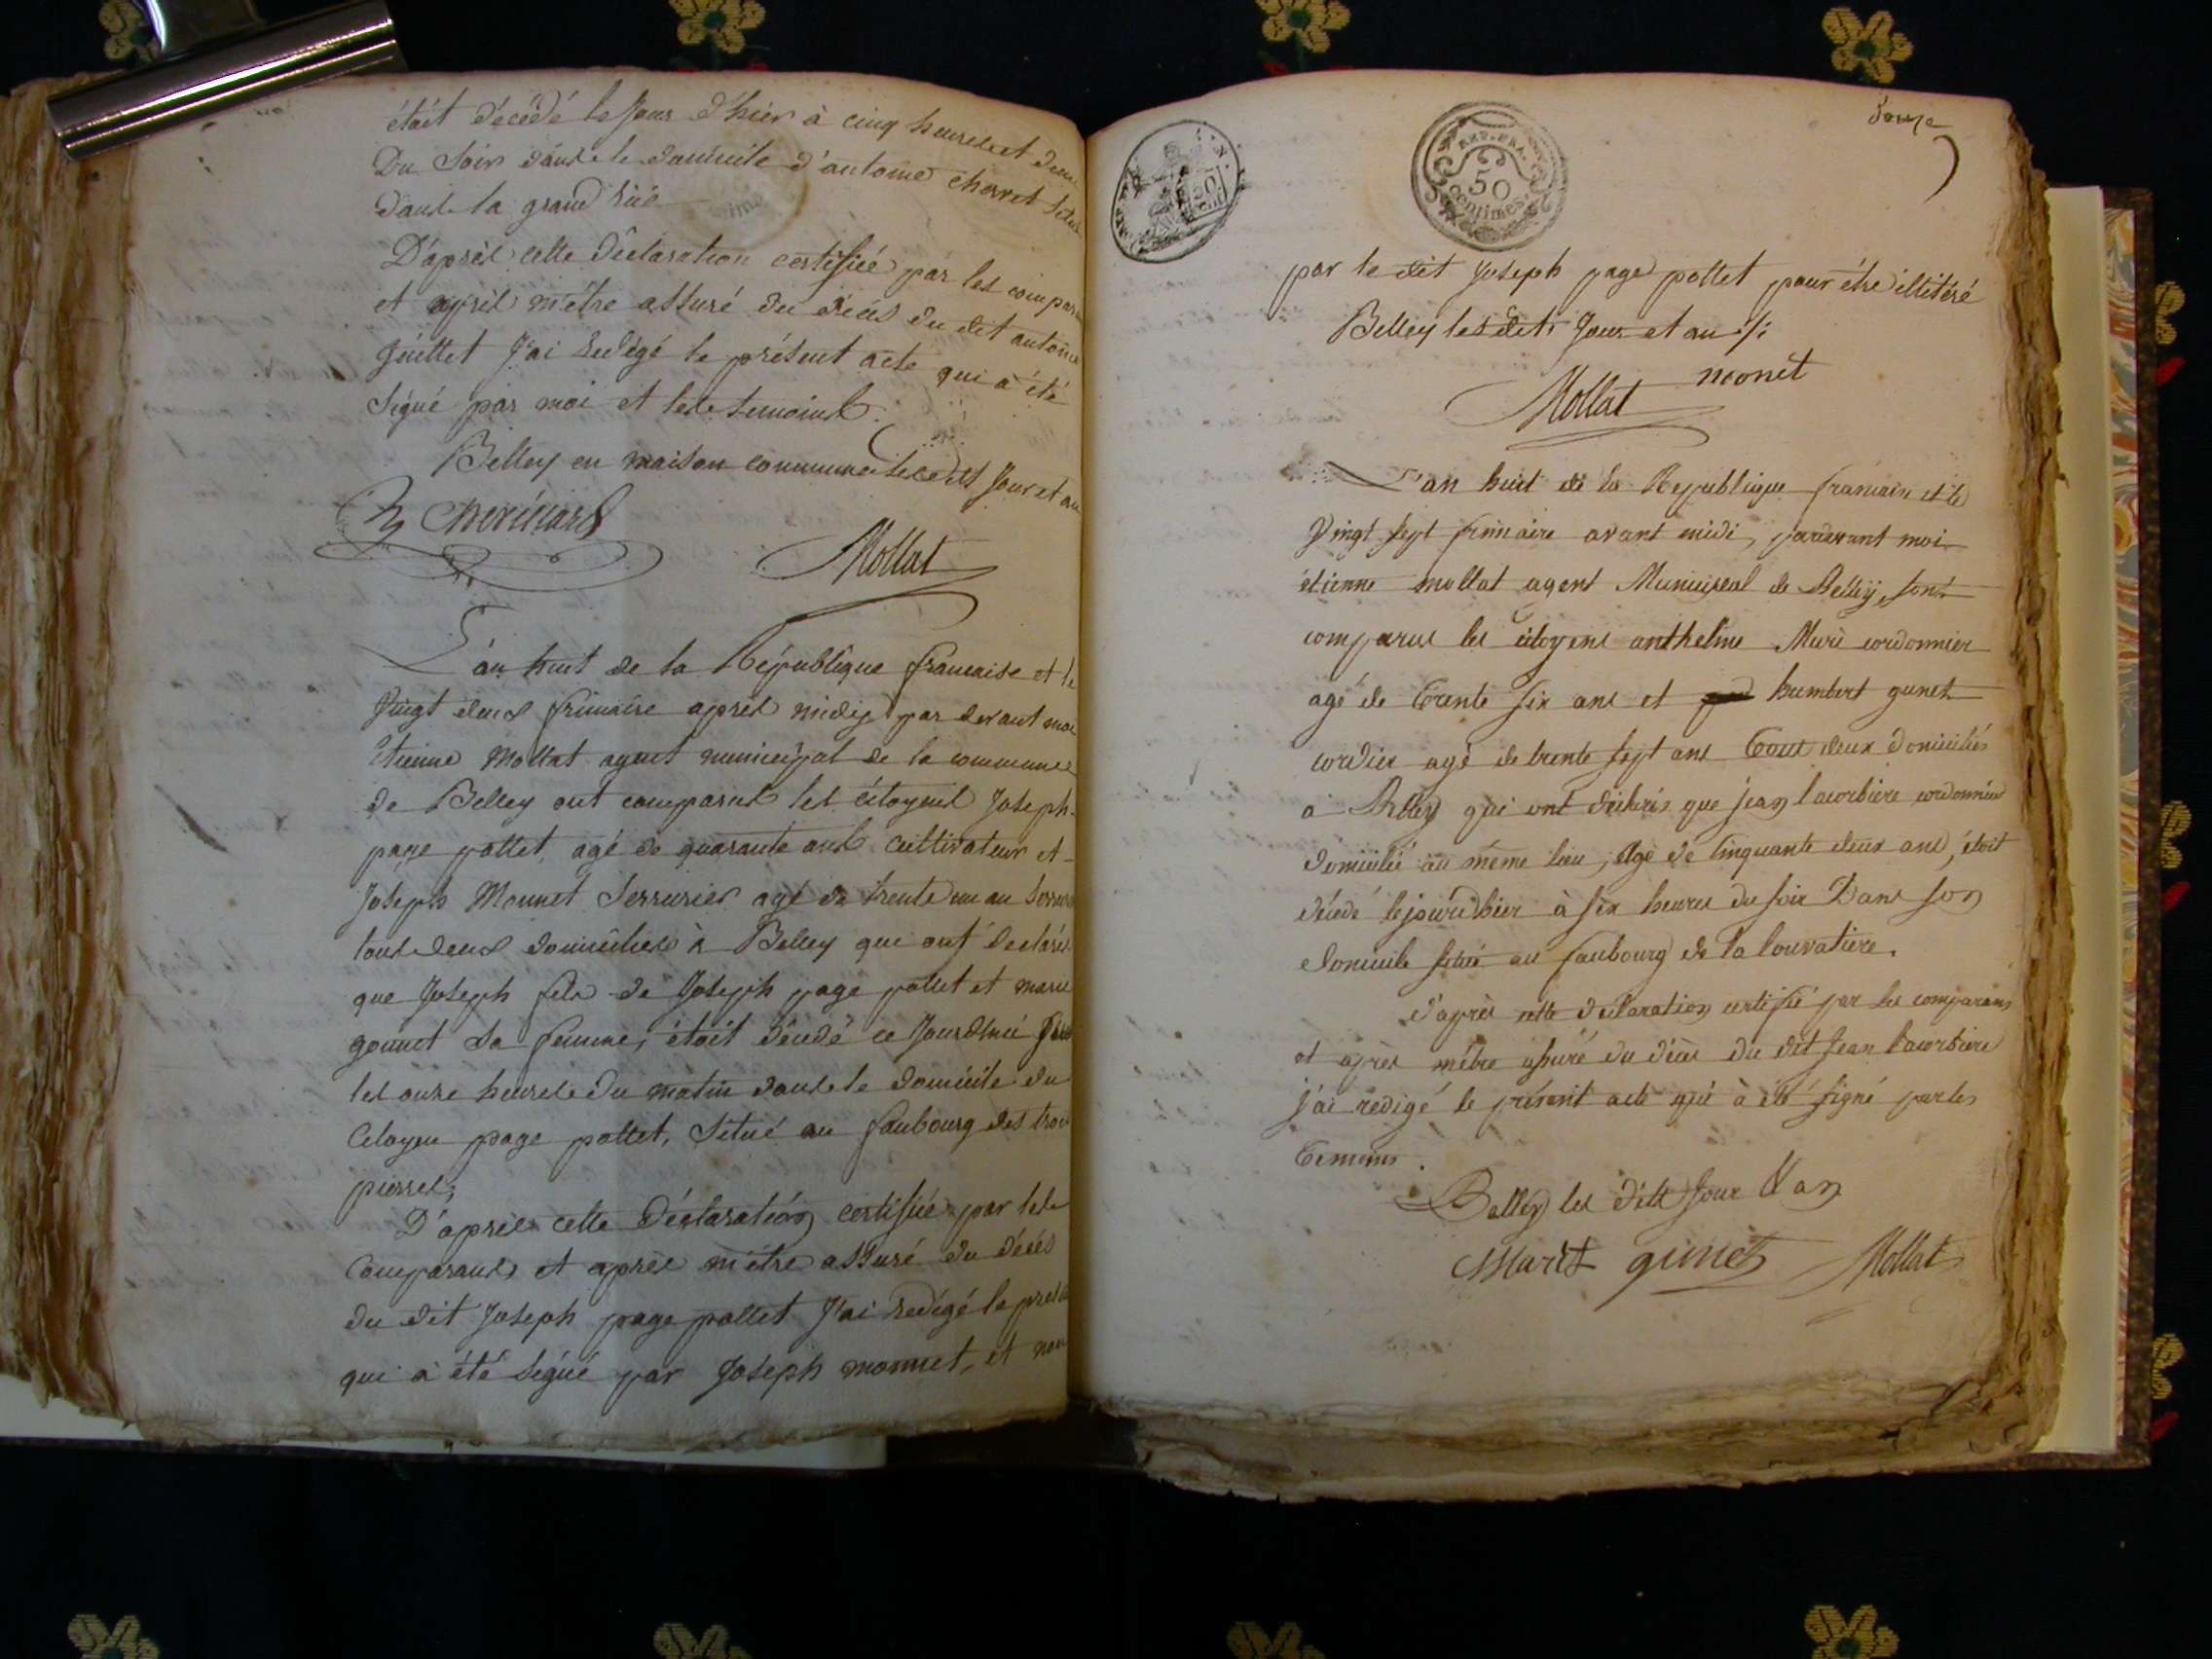 étoit décédé le Jour d'hier à cinq heures et dem
Du Soir dans le domicile d'antoine chervet situé
dans la grand rüe
D'après cette déclaration certifiée par les compara
et après m'être assuré du décès du dit antoine
Guillet J'ai redigé le présent acte qui a été
signé par moi et les temoins.
Belley en maison commune les dits Jour et an
Mollat
L'an huit de la République francaise et le
Vingt deux frimaire après midy par devant moi
Etienne Mollat agent municipal de la commune
de Belley ont comparus les citoyens Joseph
page pollet, agé de quarante ans cultivateur et
Joseph Monnet Serrurier agé de trente un an
tous deux domiciliés à Belley qui ont declaré
que Joseph fils de Joseph page pollet et marie
gonnet sa femme, étoit décédé ce Jourdhui
les onze heures du matin dans le domicile du
Citoyen page pollet, situé au faubourg des trois
pierres;
D'après cette Déclaration certifiée par les
Comparants et après m'être assuré du décès
du dit Joseph page pollet J'ai redigé le pres
qui a été signé par Joseph monnet, et non
douze
REP. FRA.
50
centimes
par le dit Joseph page pollet pour être illitéré
Belley les dits Jour et an
monet
Mollat
L'an huit de la Republique francaise et le
Vingt sept frimaire avant midi, pardevant moi
étienne mollat agent Municipal de Belley, sont
comparus les citoyens anthelme Muri cordonnier
agé de trente six ans et humbert gunet
cordier agé de trente sept ans tous deux domiciliés
a Belley qui ont déclarés que jean lacorbiere cordonnier
domicilié au même lieu, agé de cinquante deux ans, étoit
décedé le jour d'hier à six heures du soir Dans son
domicile situé au faubourg de la louvatiere.
d'après cette declaration certifié par les comparans
et après m'être assuré du décès du dit jean lacorbiere
j'ai redigé le présent acte qui à été signé par les
temoins.
Belley les dits jour & an
Mollat